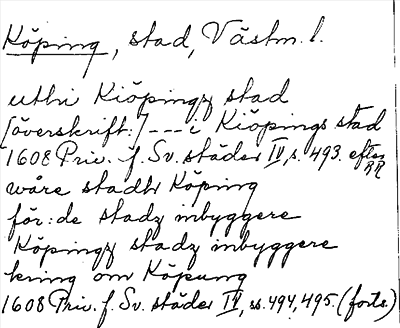 Köping, stad, Västm. l.
uthi Kiöpingz stad
[överskrift:] --- i Kiöpings stad
1608 Priv. f. Sv. städer IV, s. 493. efter RR
wåre stadtz Köping
för:de stadz inbyggere
Köpingz stadz inbyggere
kring om Köpung
1608 Priv. f. Sv. städer IV, ss. 494, 495. (forts.)